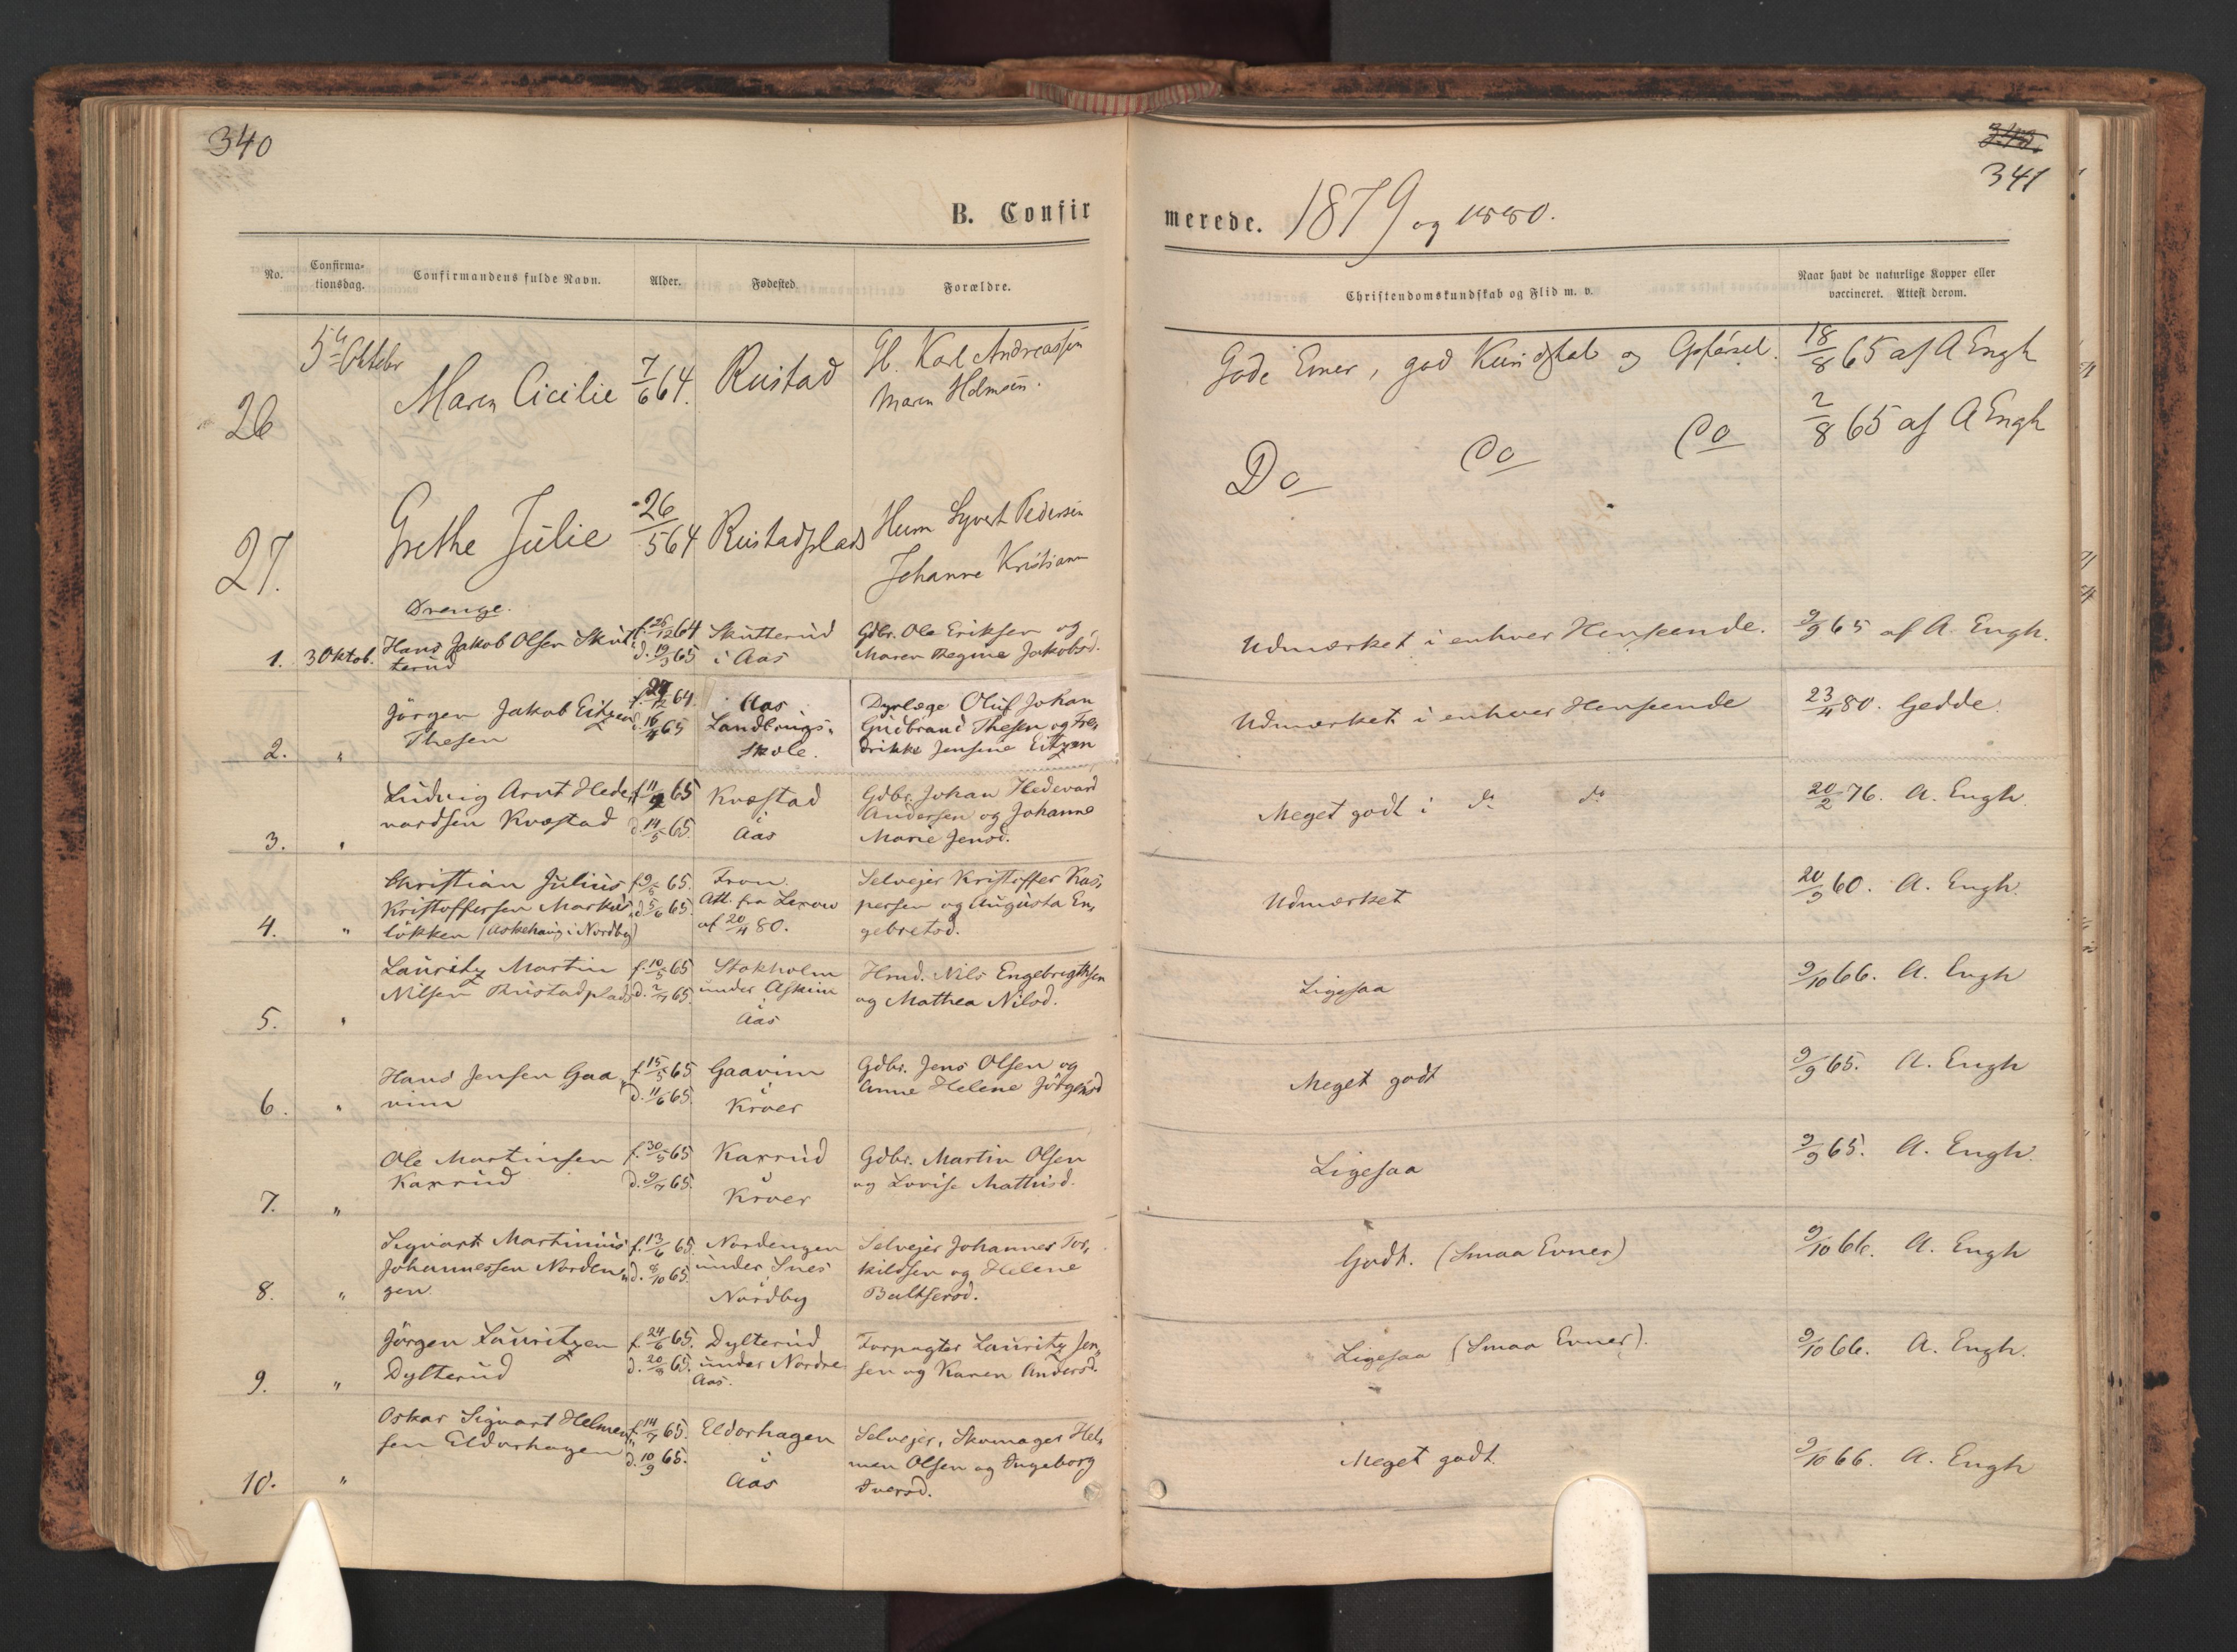 340
341
B. Confirmerede. 1879 og 1880.
No.
Confirma-
tionsdag.
Confirmandens fulde Navn.
Alder.
Fødested
Forældre.
Christendomskundskab og Flid m. v.
Naar havt de naturlige Kopper eller
vaccineret. Attest derom.
5te Oktobr
26
Maren Cicilie
7/6 64.
Rustad
G. Karl Andreassen
Maren Holmsen.
Gode Evner, god Kundskab og Opförsel.
18/8 65 af A Engh
27.
Grethe Julie
26/5 64
Rustadplads
Husm Syvert Pedersen
Johanne Kristian
Do Do Do
2/8 65 af A Engh
Drenge.
1. 3 Oktob.
Hans Jakob Olsen Skut
terud
f. 26/12 64
d. 19/3 65
Skutterud
i Aas
Gdbr. Ole Eriksen og
Maren Regine Jakobsd.
Udmærket i enhver Henseende.
9/9 65 af A. Engh.
2. "
Jörgen Jakob Eitzen
Thesen
f. 12 64.
d. 16/4 65
Aas
Landbrugs-
skole.
Dyrlæge Oluf Johan
Gudbrand Thesen og Fre-
drikke Jensine Eitzen
Udmærket i enhver Henseende
23/4 80. Gedde.
3. "
Ludvig Arnt Hede-
vardsen Kvestad
f. 11 65
d. 14/5 65.
Kvestad
i
Aas
Gdbr. Johan Hedevard
Andersen og Johanne
Marie Jensd.
Meget godt i do do
20/2 76. A. Engh.
4. "
Christian Julius
Kristoffersen Markus-
lökken (Askehaug i Nordby)
f. 9/5 65.
d. 5/6 65.
Fron.
Att. fra Lexow
af 20/4 80.
Selvejer Kristoffer Kas-
persen og Augusta En-
gebretsd.
Udmærket
20/9 60. A. Engh.
5. "
Lauritz Martin
Nilsen Rustadplads
f. 10/5 65
d. 2/7 65.
Stokholm
under Askim
i
Aas
Hmd. Nils Engebrigtsen
og Mathea Nilsd.
Ligesaa
9/10 66. A. Engh
6. "
Hans Jensen Gaa-
vim
f. 15/5 65
d. 11/6 65.
Gaavim
i
Kroer
Gdbr. Jens Olsen og
Anne Helene Jörgensd
Meget godt
9/9 65. A. Engh
7. "
Ole Martinsen
Kaxrud
f. 30/5 65
d. 9/7 65.
Kaxrud
i
Kroer
Gdbr. Martin Olsen
og Lovise Mathisd.
Ligesaa
9/9 65. A. Engh.
8. "
Sigvart Martinius
Johannessen Norden-
gen.
f. 13/6 65.
d. 8/10 65.
Nordengen
under Snes
i
Nordby
Selvejer Johannes Tor-
kildsen og Helene
Baltsersd.
Godt. (Smaa Evner)
9/10 66. A. Engh
9. "
Jörgen Lauritzen
Dylterud
f. 24/6 65.
d. 20/8 65.
Dylterud
under Nordre
Aas.
Forpagter Lauritz Jen-
sen og Karen Andersd.
Ligesaa (Smaa Evner).
9/10 66. A. Engh.
10. "
Oskar Sigvart Helmen-
sen Eldorhagen
f. 14/7 65.
d. 10/9 65.
Eldorhagen
i
Aas
Selvejer, Skomager Hel-
men Olsen og Ingeborg
Iversd.
Meget godt.
9/10 66. A. Engh